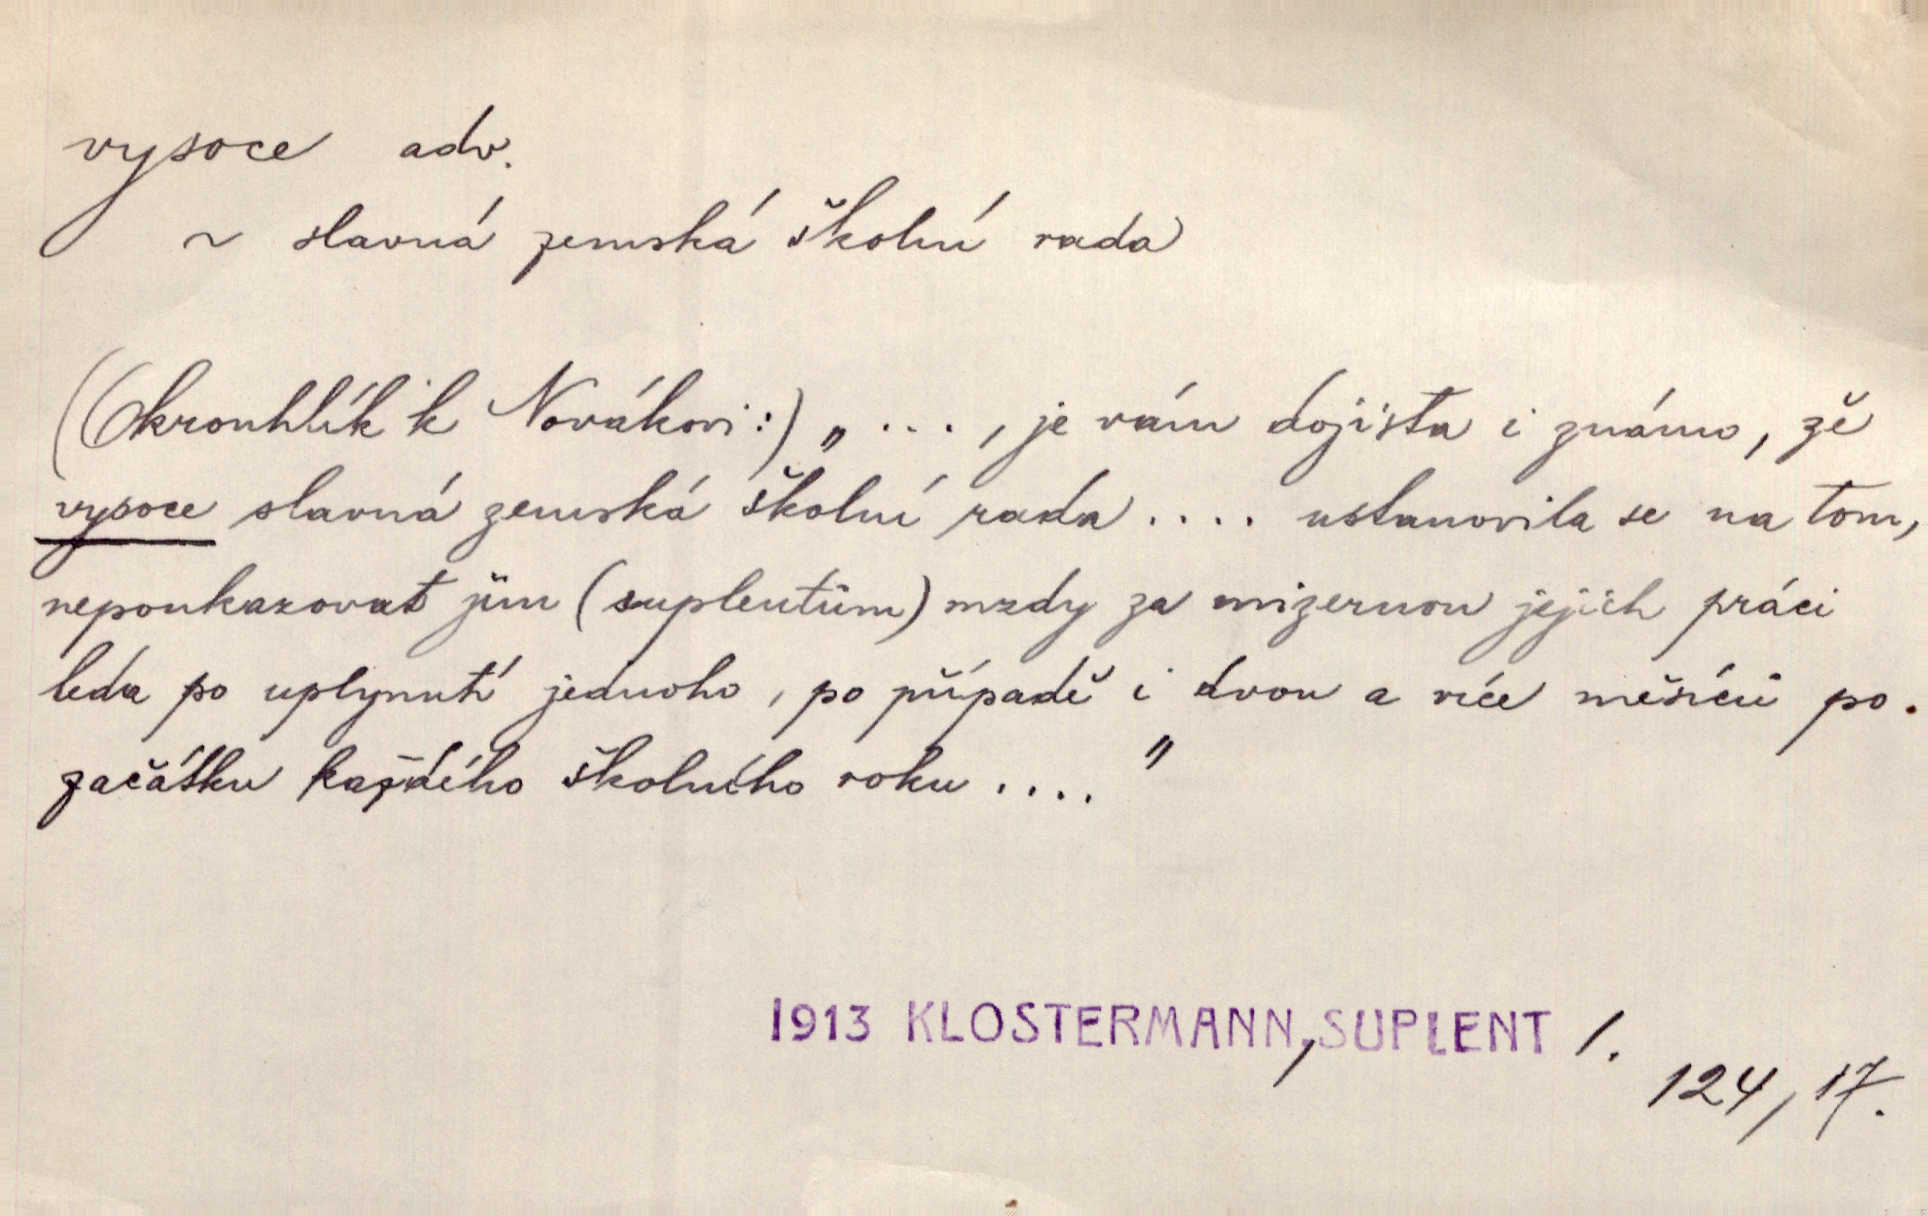 vysoce adv.
~ slavná zemská školní rada
(Okrouhlík k Novákovi:) „ ..., je vám dojista i známo, že
vysoce slavná zemská školní rada .... ustanovila se na tom,
nepoukazovat jim (suplentům) mzdy za mizernou jejich práci
leda po uplynutí jednoho, po případě i dvou a více měsíců po.
začátku každého školního roku .... "
1913 KLOSTERMANN, SUPLENT 1.
124, 17.